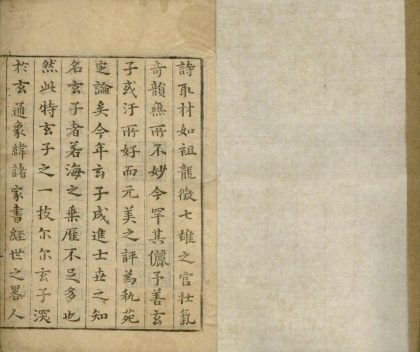 詩取材如祖龍從七雄之宫壮氣
奇韻無所不妙今罕其儷予善玄
子或汙所好而元美之評為執苑
定論矣今年玄子成進士世之知
名玄子者若海之乗雁不足多也
然此特玄子之一技尔尔玄子深
於玄通象緯諸家書經世之畧人